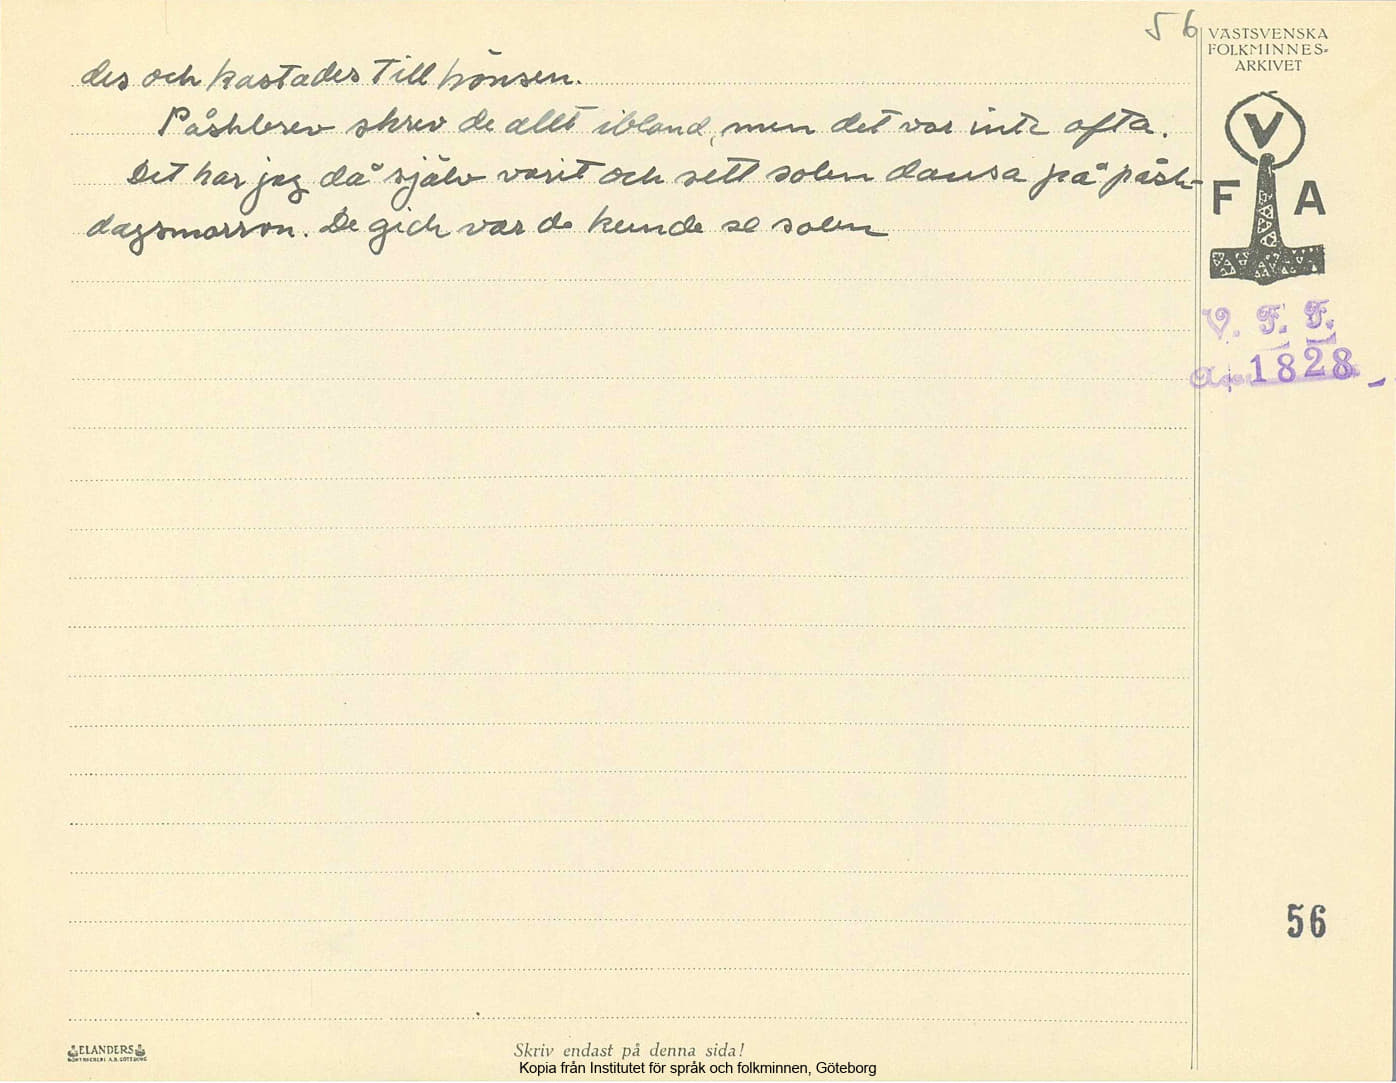 56
VÄSTSVENSKA
FOLKMINNES-
ARKIVET
des och kastades till hönsen.
Påskbrev skrev de allt ibland, men det var inte ofta.
Det har jag då själv varit och sett solen dansa på påsk-
dagsmorron. De gick var de kunde se solen
V
F A
V. F. F.
1828
56
ELANDERS
Skriv endast på denna sida!
Kopia från Institutet för språk och folkminnen, Göteborg